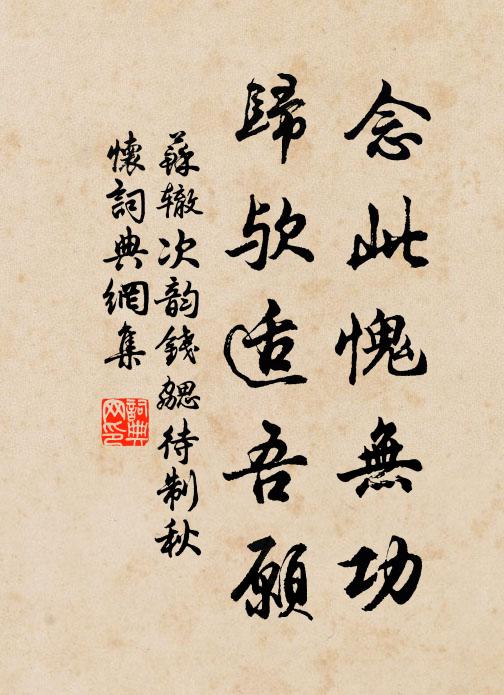 念此愧無功
歸欤适吾願
蘇辙次韵錢勰待制秋
懷詞典網集
詞典网印